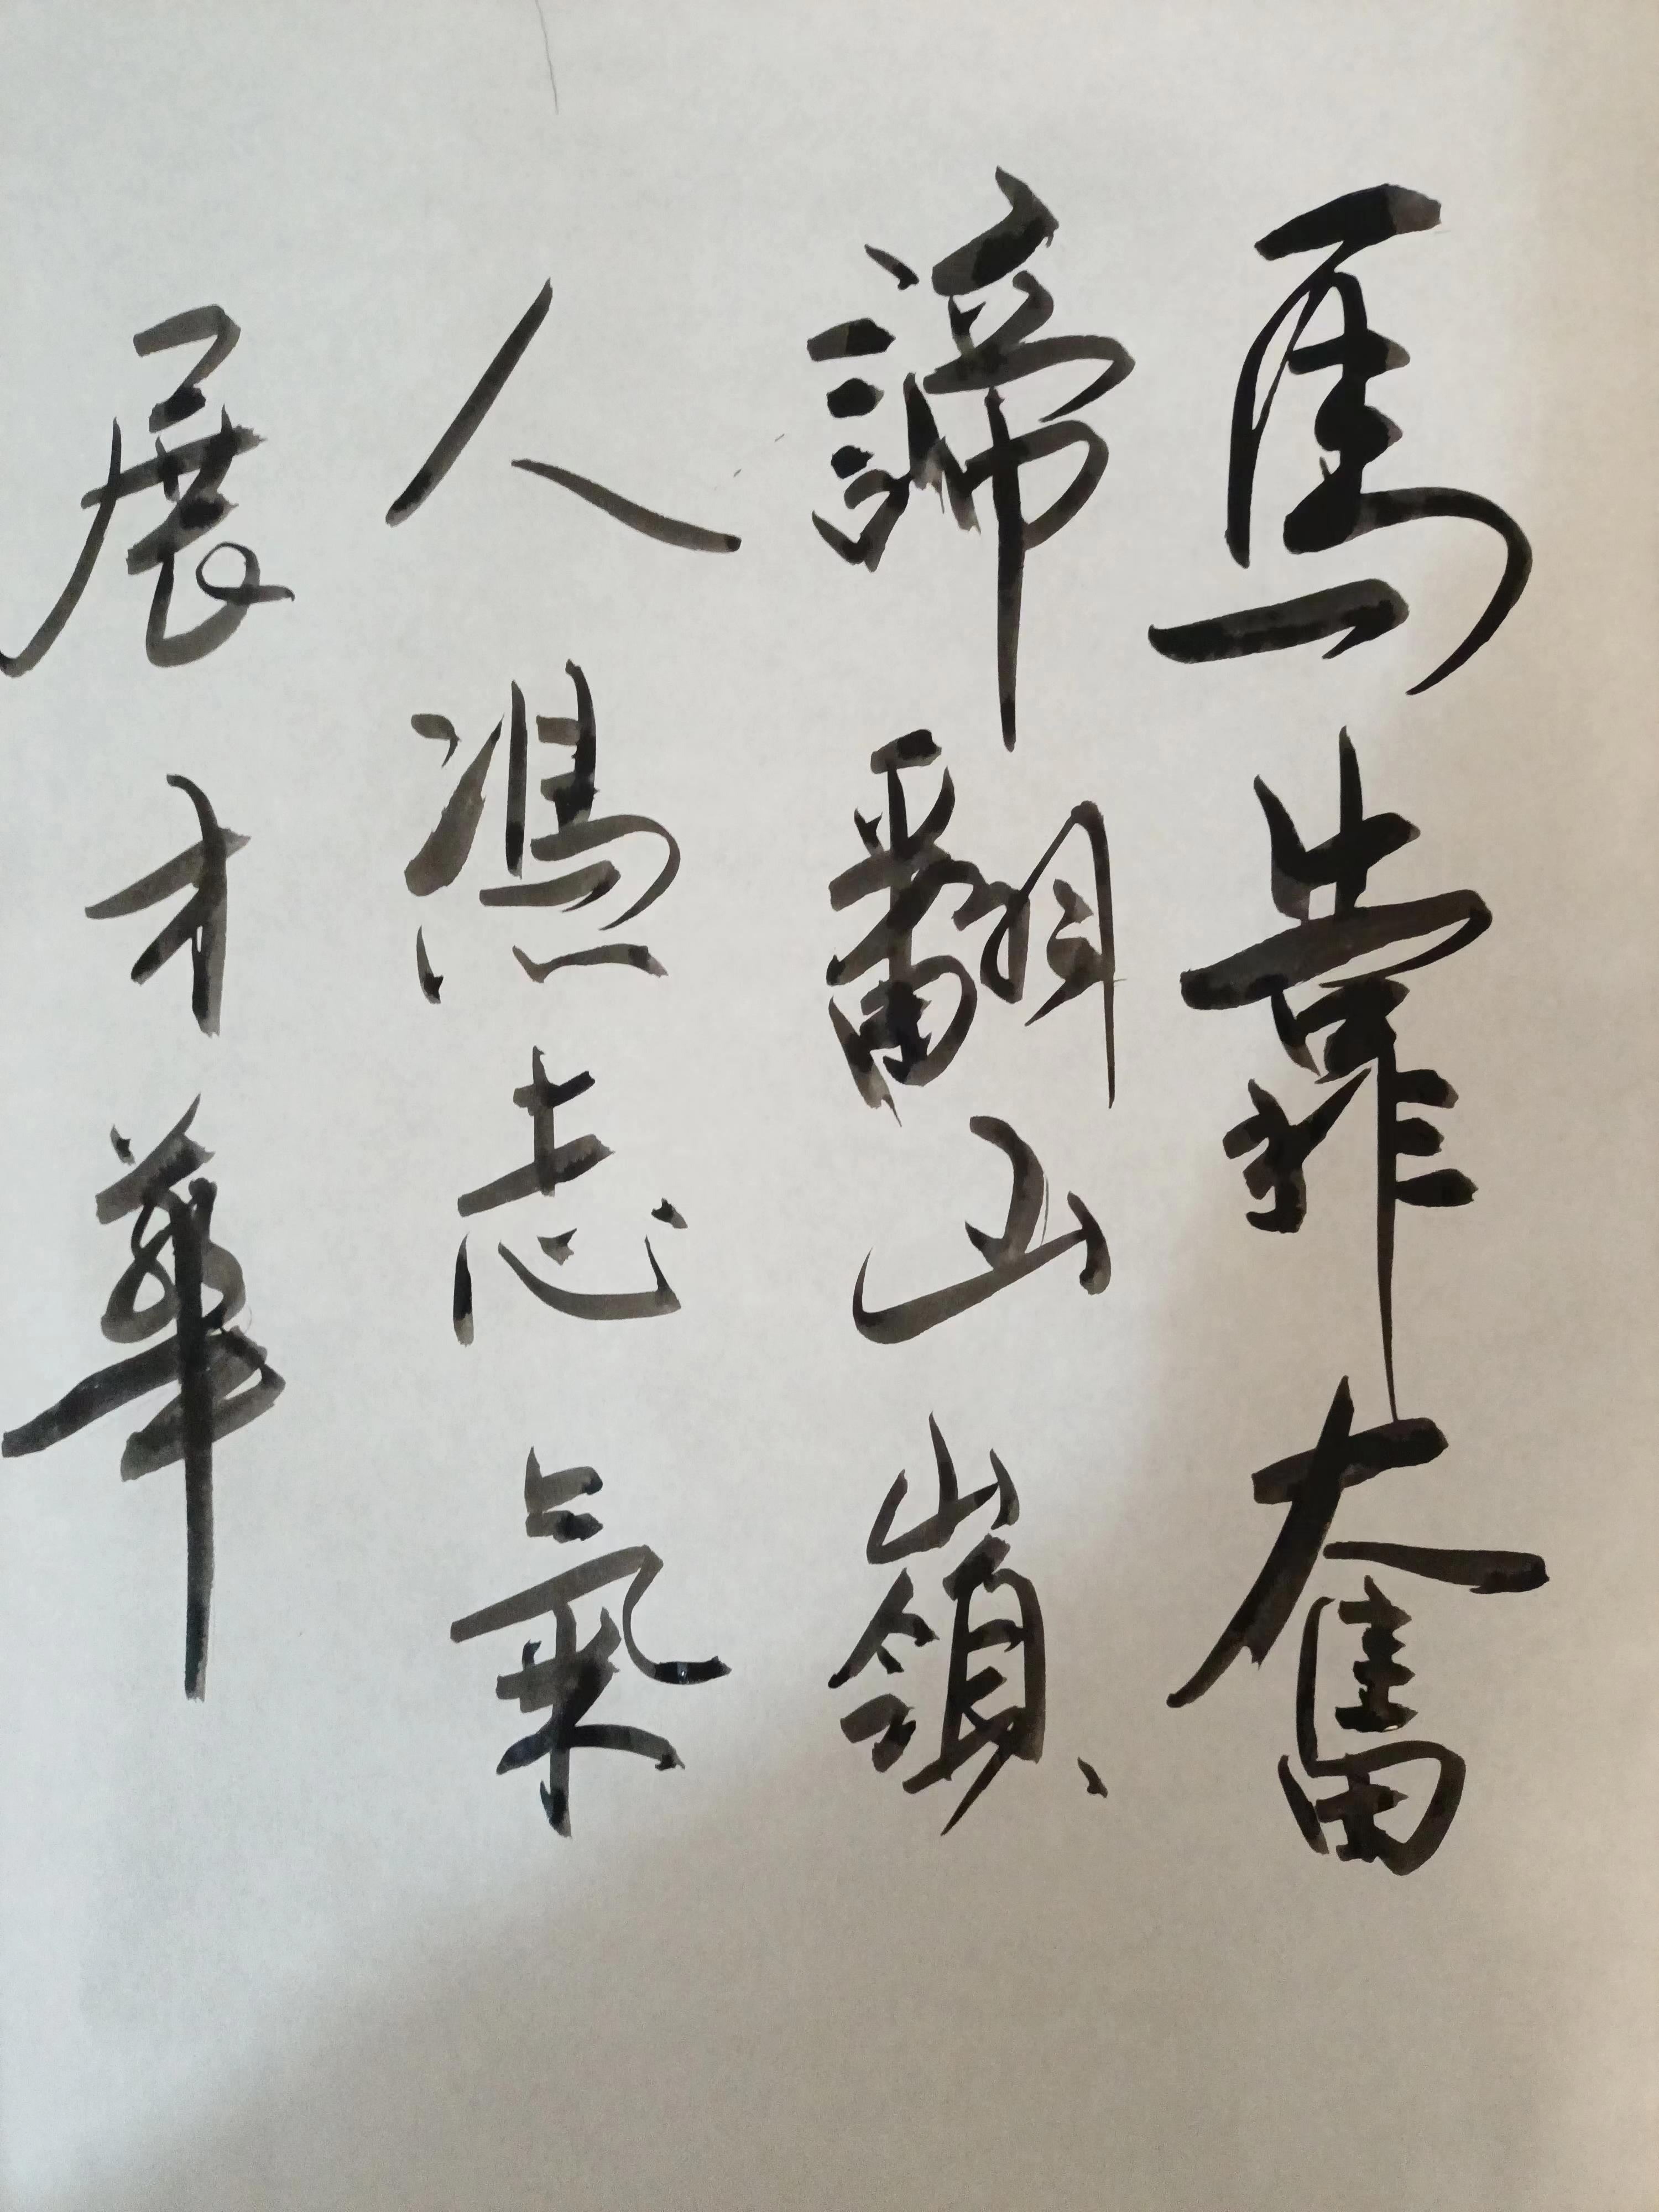 馬靠奮
諦翻山嶺
人憑志氣
展才華